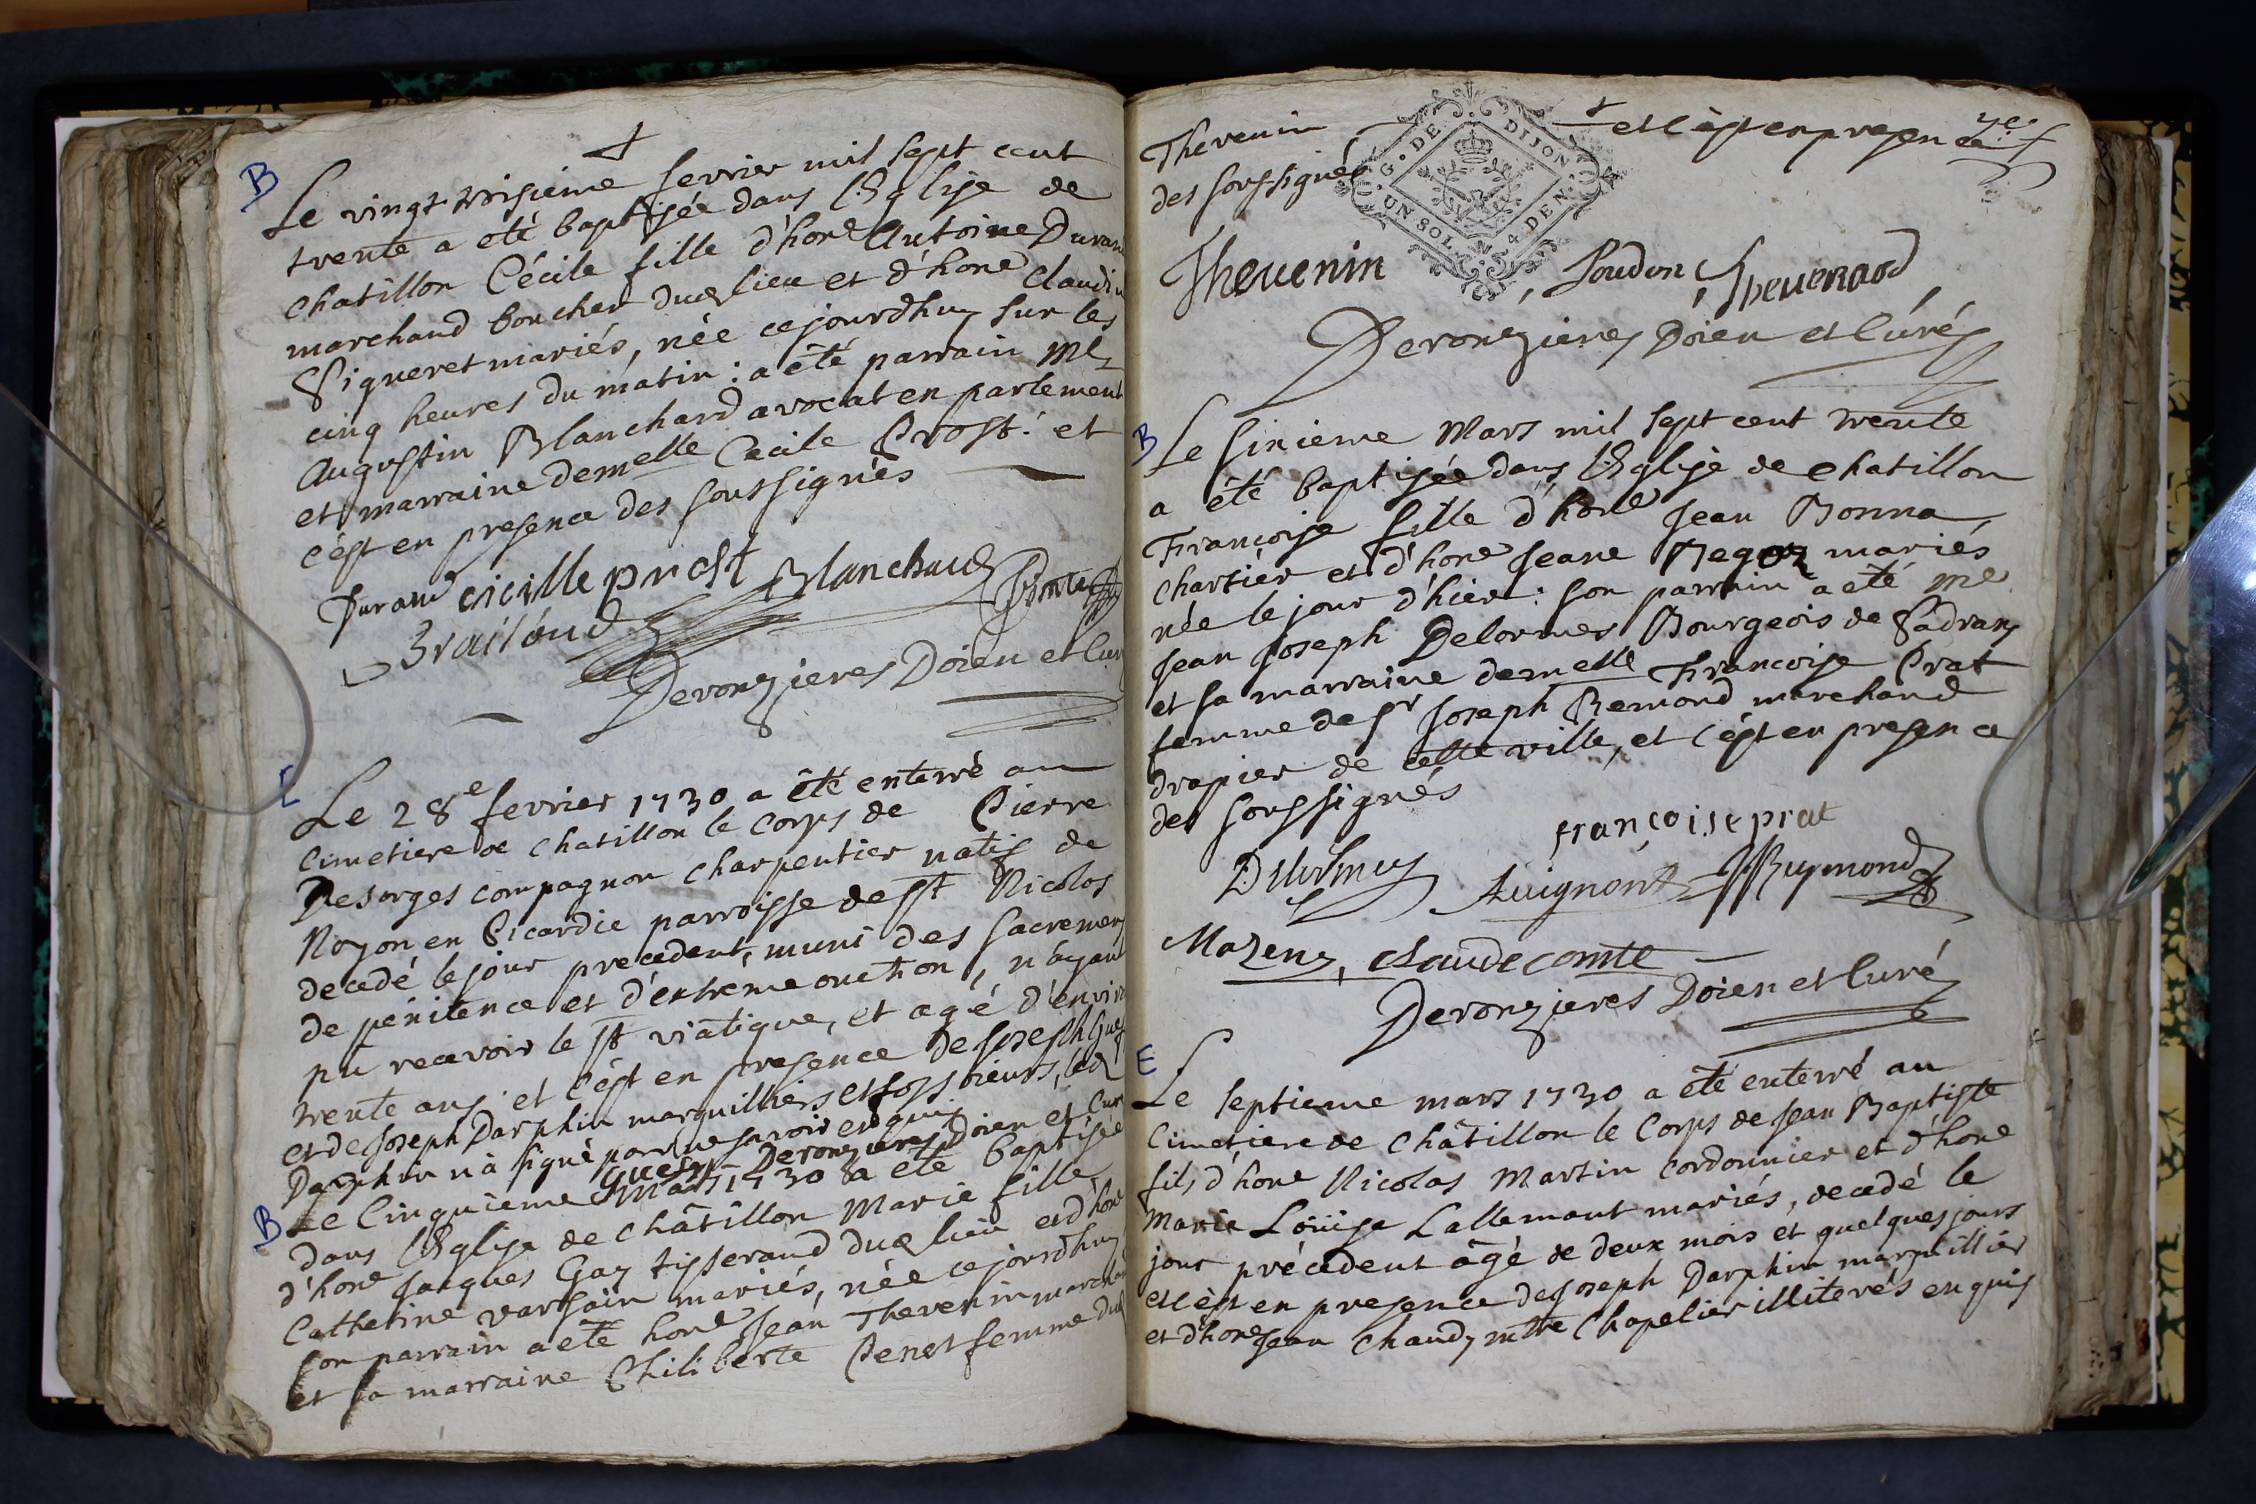 B
Le vingt troisieme fevrier mil sept cent
trente a été baptisée dans l'Eglise de
chatillon Cécile fille d'hone Antoine Duran
marchand boucher dud lieu et d'hone Claudi
Pigneret mariés, née cejourdhuy sur les
cinq heures du matin : a été parrain Me
Augustin Blanchard avocat en parlement
et marraine demelle Cecile Prost : et
c'est en presence des soussignés
Durand cicille prost Blanchard
Deronzieres Doien et Cur
E
Le 28e fevrier 1730 a été enterré au
Cimetiere de chatillon le corps de Pierre
Desorges compagnon charpentier natif de
Noyon en Picardie parroisse de St Nicolas
decedé le jour precedent, muni des sacremens
de pénitence et d'extrème onction, n'ayant
pu recevoir le St viatique, et agé d'enviro
trente ans et c'est en presence de Joseph Gue
et de Joseph Darphin marguilliers et fossoieurs, led
Darphin n'a signé pour ne savoir enquis
Deronzieres Doien et Curé
B Le Cinquieme mars 1730 a été baptisée
dans l'Eglise de châtillon Marie fille
d'hone Jacques Gay tisserand dud lieu et d'hone
Catherine varsain mariés, née cejourdhuy
son parrain a été hone Jean Thevenin marchan
et sa marraine Philiberte Penet femme dud
Thevenin et c'est en presence
des soussignés
G. DE DIJON
UN SOL 4 DEN.
Thevenin, Loudon, Thevenard,
Deronzieres Doien et Curé
B Le sixieme Mars mil sept cent trente
a été baptisée dans l'Eglise de chatillon
Françoise fille d'hone Jean Bonna,
chartier et d'hone Jeane Begoz mariés
née le jour d'hier : son parrain a été Me
Jean Joseph Delormes Bourgeois de
et sa marraine demelle Françoise Prat
femme de Sr Joseph Remond marchand
drapier de cette ville, et c'est en presence
des soussignés
françoise prat
Delormes Avignon JReymond
Mazeny, claude comte
Deronzieres Doien et Curé
E
Le septieme mars 1730 a été enterré au
Cimetiere de châtillon le Corps de Jean Baptiste
fils d'hone Nicolas Martin cordonnier et d'hone
Marie Loüise Lallemant mariés, decedé le
jour précedent âgé de deux mois et quelques jours
et c'est en presence de Joseph Darphin marguillier
et d'hone Jean Chaudy mtre Chapelier illiterés enquis